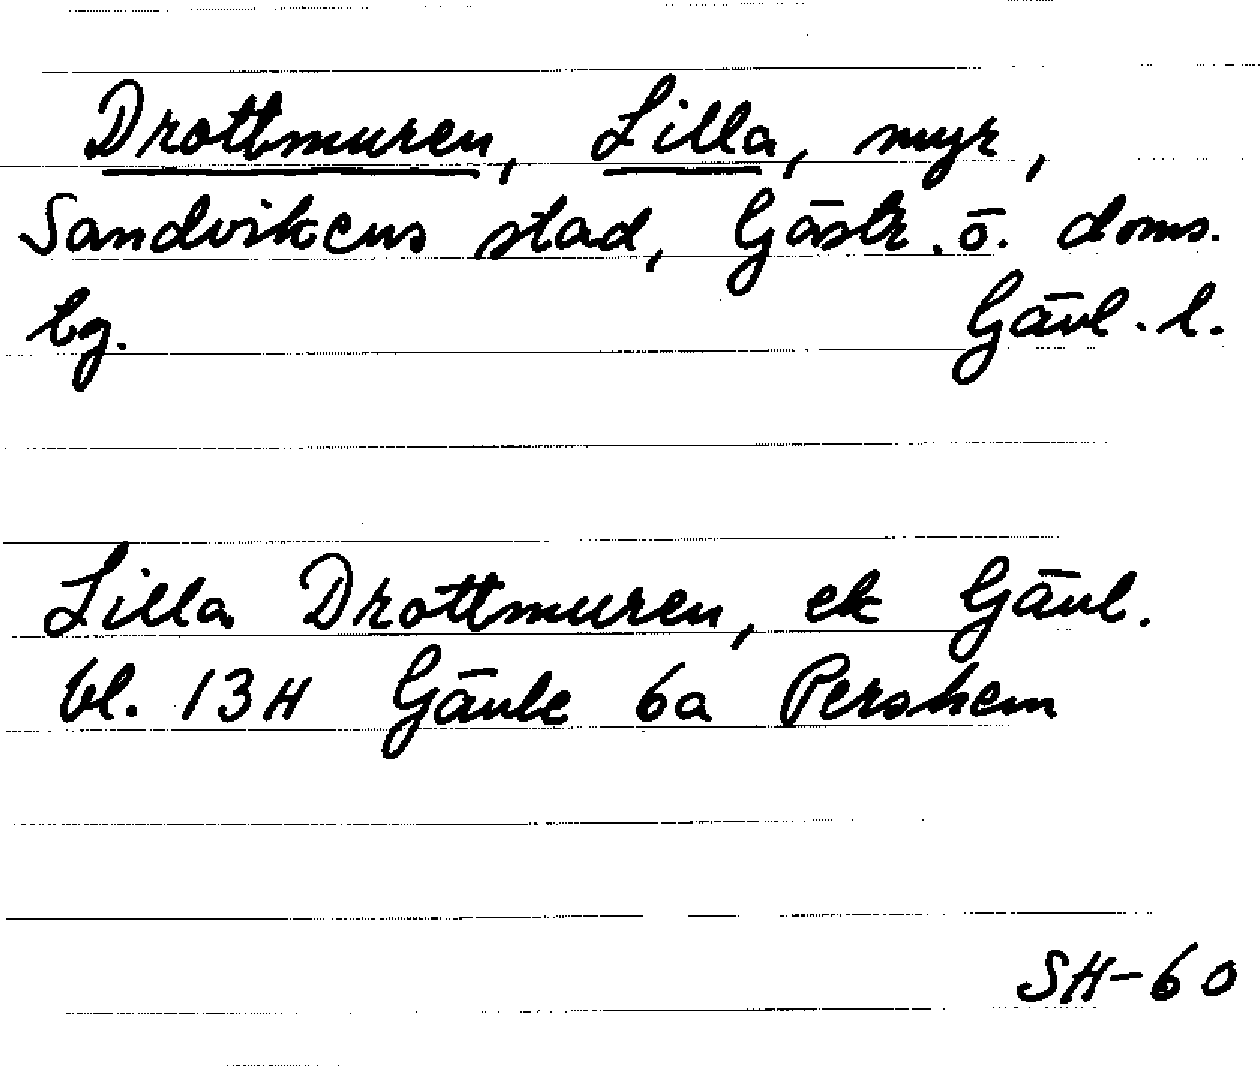 Drottmuren, Lilla, myr,
Sandvikens stad, Gästr. ö. doms.
bg. Gävl. l.
Lilla Drottmuren, ek Gävl.
bl. 13H Gävle 6a Pershem
SH-60